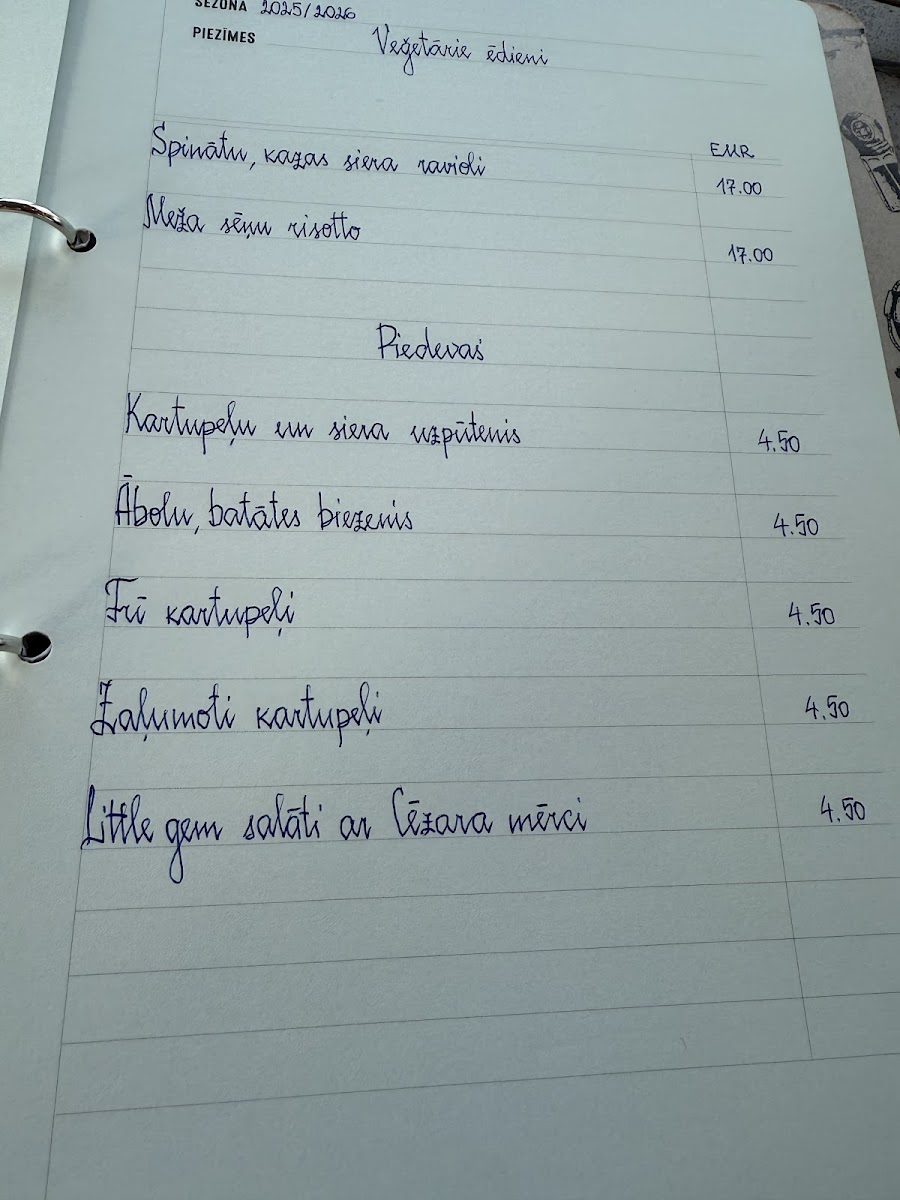 SEZONA 2025/2026
PIEZĪMES Veģetārie ēdieni
EUR
Spinātu, kazas siera ravioli 17.00
Meža sēņu risotto 17.00
Piedevas
Kartupeļu un siera uzpūtenis 4.50
Ābolu, batātes biezenis 4.50
Frī kartupeļi 4.50
Zaļumoti kartupeļi 4.50
Little gem salāti ar Cēzara mērci 4.50